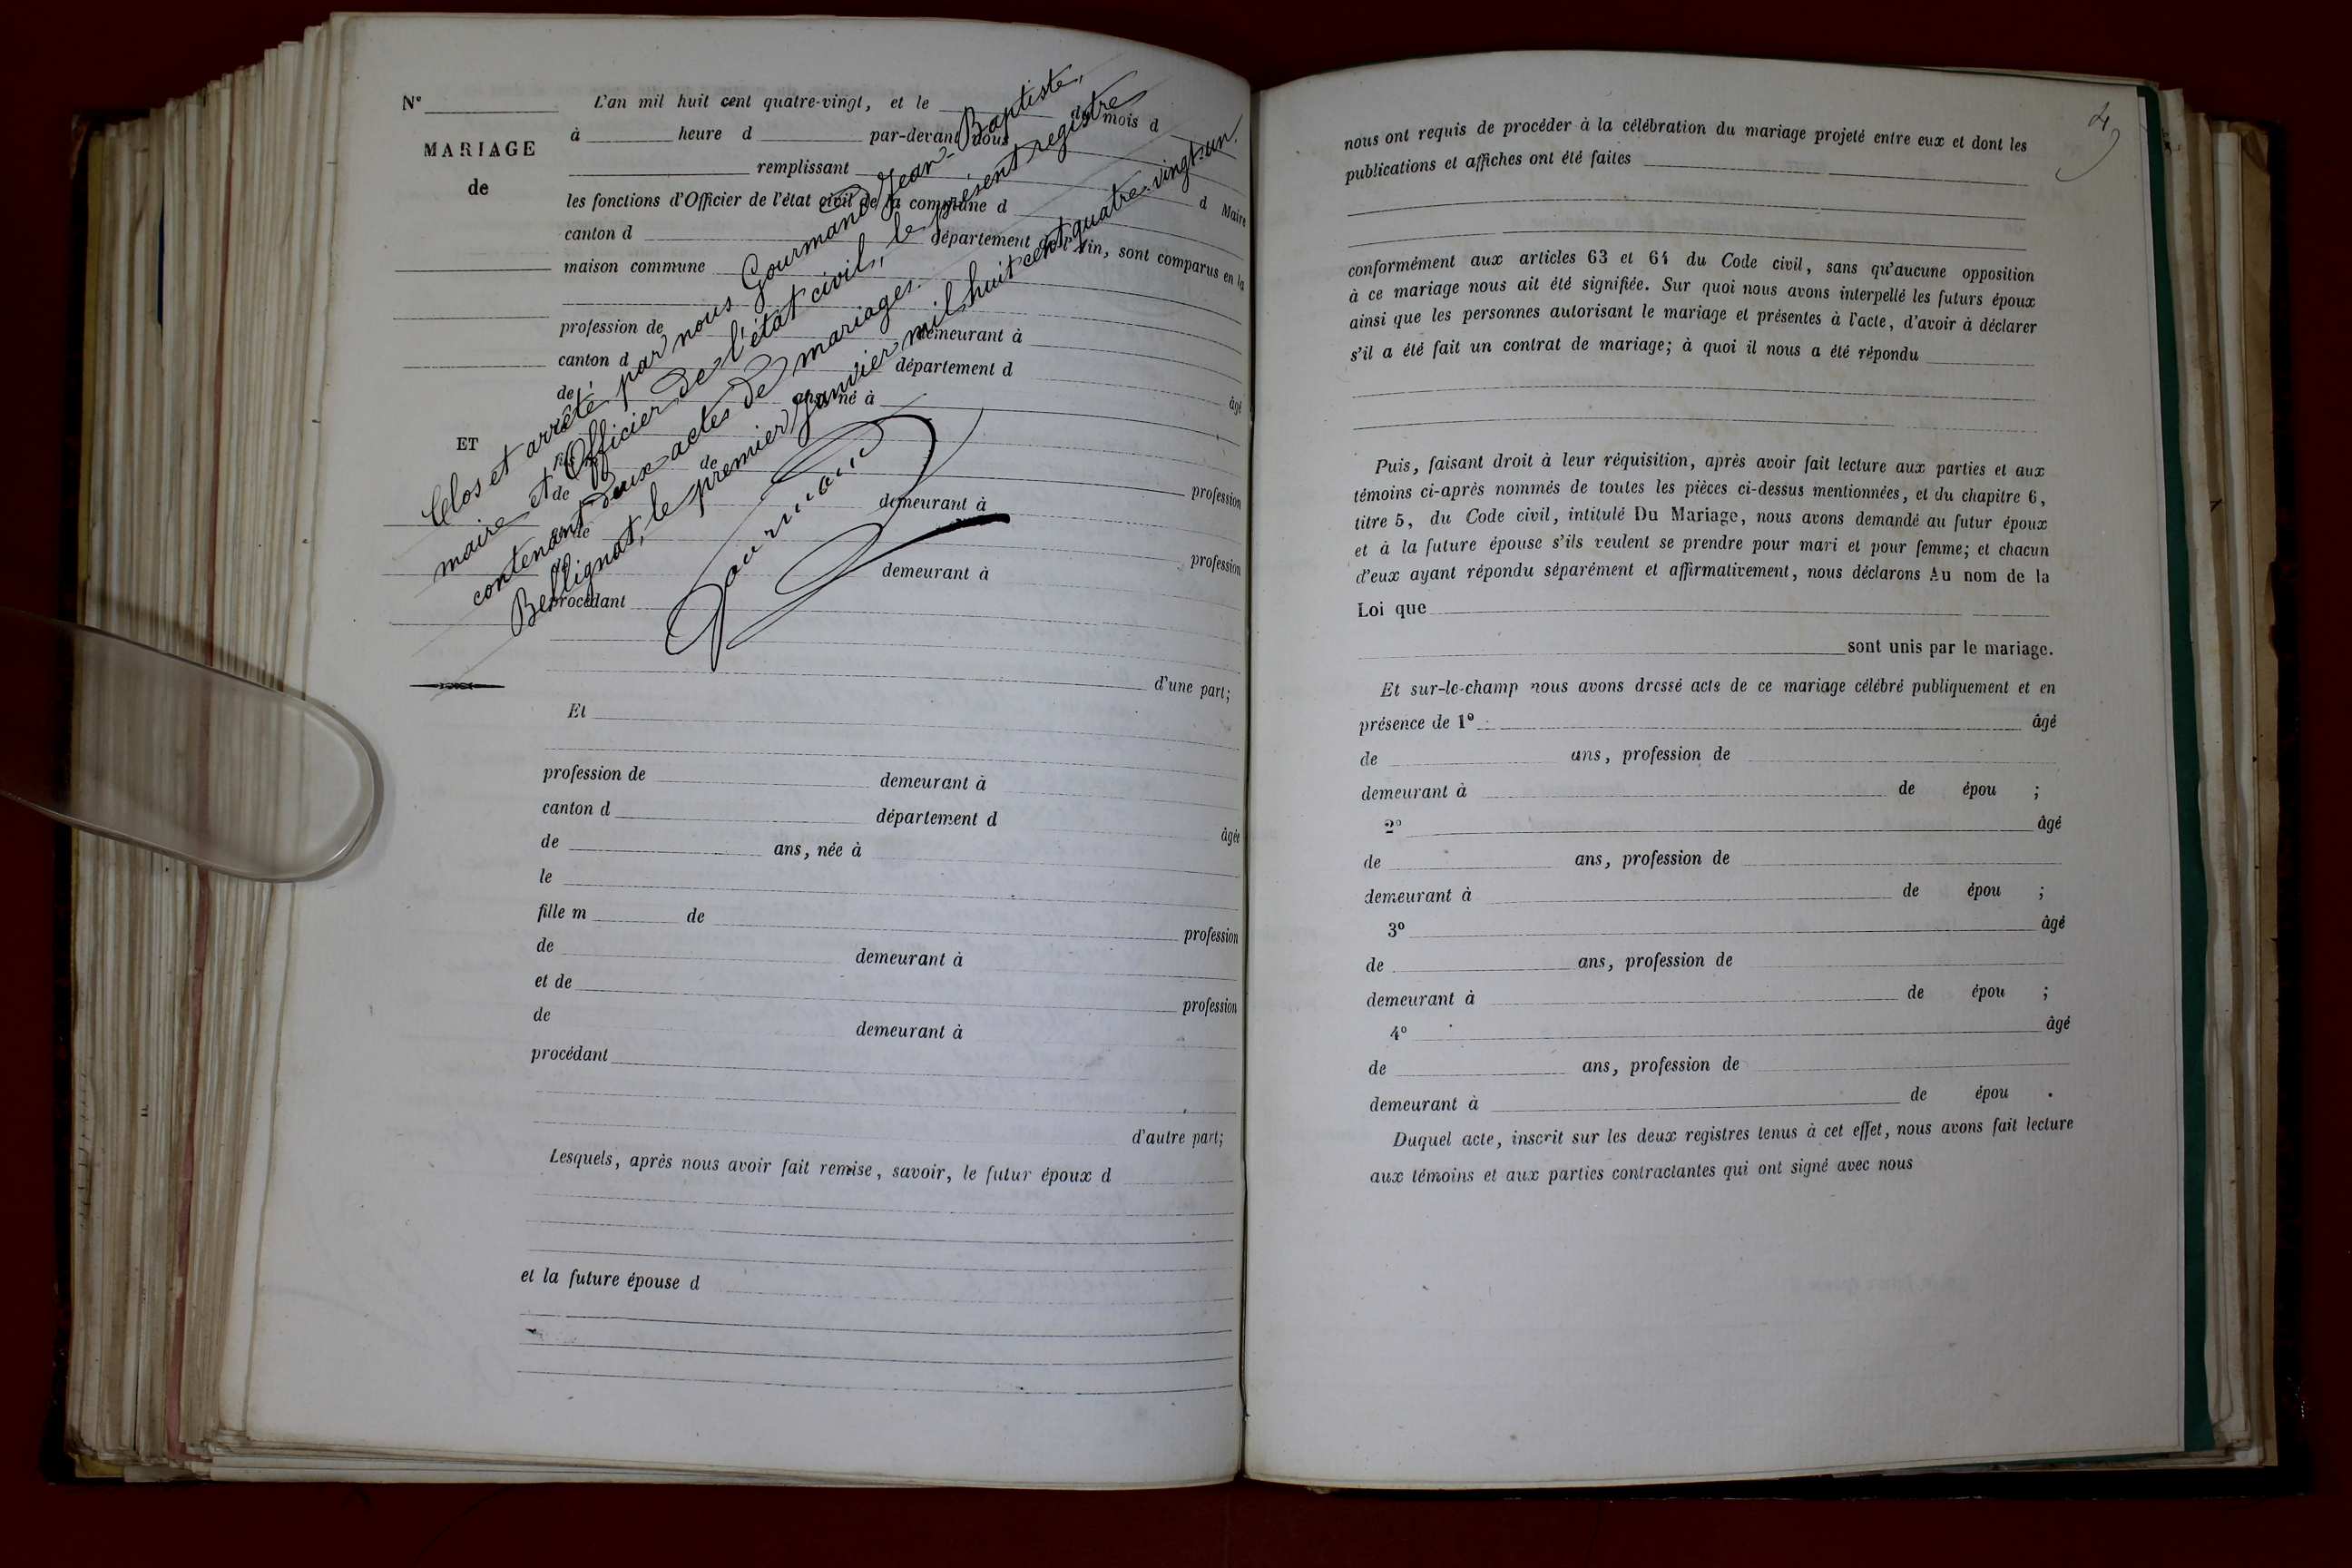 N° L'an mil huit cent quatre-vingt, et le du mois d
MARIAGE
de
à heure d par-devant nous
remplissant
les fonctions d'Officier de l'état civil de la commune d d Maire
canton d département de l'Ain, sont comparus en la
maison commune
profession de demeurant à
canton d département d âgé
de ans, né à
ET
fils m de profession
de demeurant à
et de profession
de demeurant à
procédant
d'une part;
Clos et arrêté par nous Gourmand Jean-Baptiste,
maire et Officier de l'état civil, le présent registre
contenant deux actes de mariages.
Bellignat, le premier Janvier mil huit cent quatre-vingt-un.
Gourmand
Et
profession de demeurant à
canton d département d âgée
de ans, née à
le
fille m de profession
de demeurant à
et de profession
de demeurant à
procédant
d'autre part;
Lesquels, après nous avoir fait remise, savoir, le futur époux d
et la future épouse d
4
nous ont requis de procéder à la célébration du mariage projeté entre eux et dont les
publications et affiches ont été faites
conformément aux articles 63 et 64 du Code civil, sans qu'aucune opposition
à ce mariage nous ait été signifiée. Sur quoi nous avons interpellé les futurs époux
ainsi que les personnes autorisant le mariage et présentes à l'acte, d'avoir à déclarer
s'il a été fait un contrat de mariage; à quoi il nous a été répondu
Puis, faisant droit à leur réquisition, après avoir fait lecture aux parties et aux
témoins ci-après nommés de toutes les pièces ci-dessus mentionnées, et du chapitre 6,
titre 5, du Code civil, intitulé Du Mariage, nous avons demandé au futur époux
et à la future épouse s'ils veulent se prendre pour mari et pour femme; et chacun
d'eux ayant répondu séparément et affirmativement, nous déclarons Au nom de la
Loi que
sont unis par le mariage.
Et sur-le-champ nous avons dressé acte de ce mariage célébré publiquement et en
présence de 1° âgé
de ans, profession de
demeurant à de épou ;
2° âgé
de ans, profession de
demeurant à de épou ;
3° âgé
de ans, profession de
demeurant à de épou ;
4° âgé
de ans, profession de
demeurant à de épou .
Duquel acte, inscrit sur les deux registres tenus à cet effet, nous avons fait lecture
aux témoins et aux parties contractantes qui ont signé avec nous